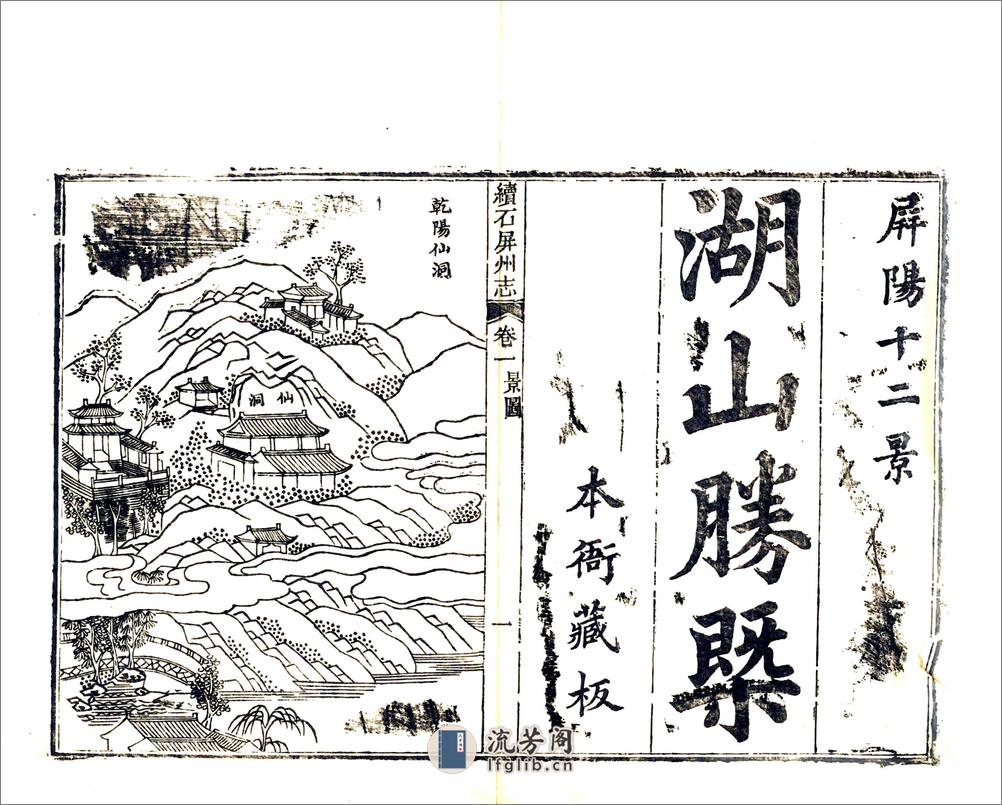 屏陽十二景
湖山勝槩
本衙藏板
續石屏州志
卷一
景圖
一
乾陽仙洞
仙洞
流芳阁
lfglib.cn